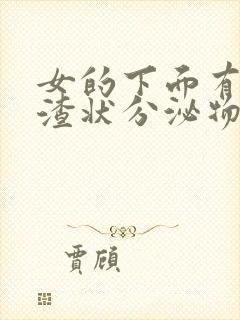 女的下面有
渣状分泌物
贾顾